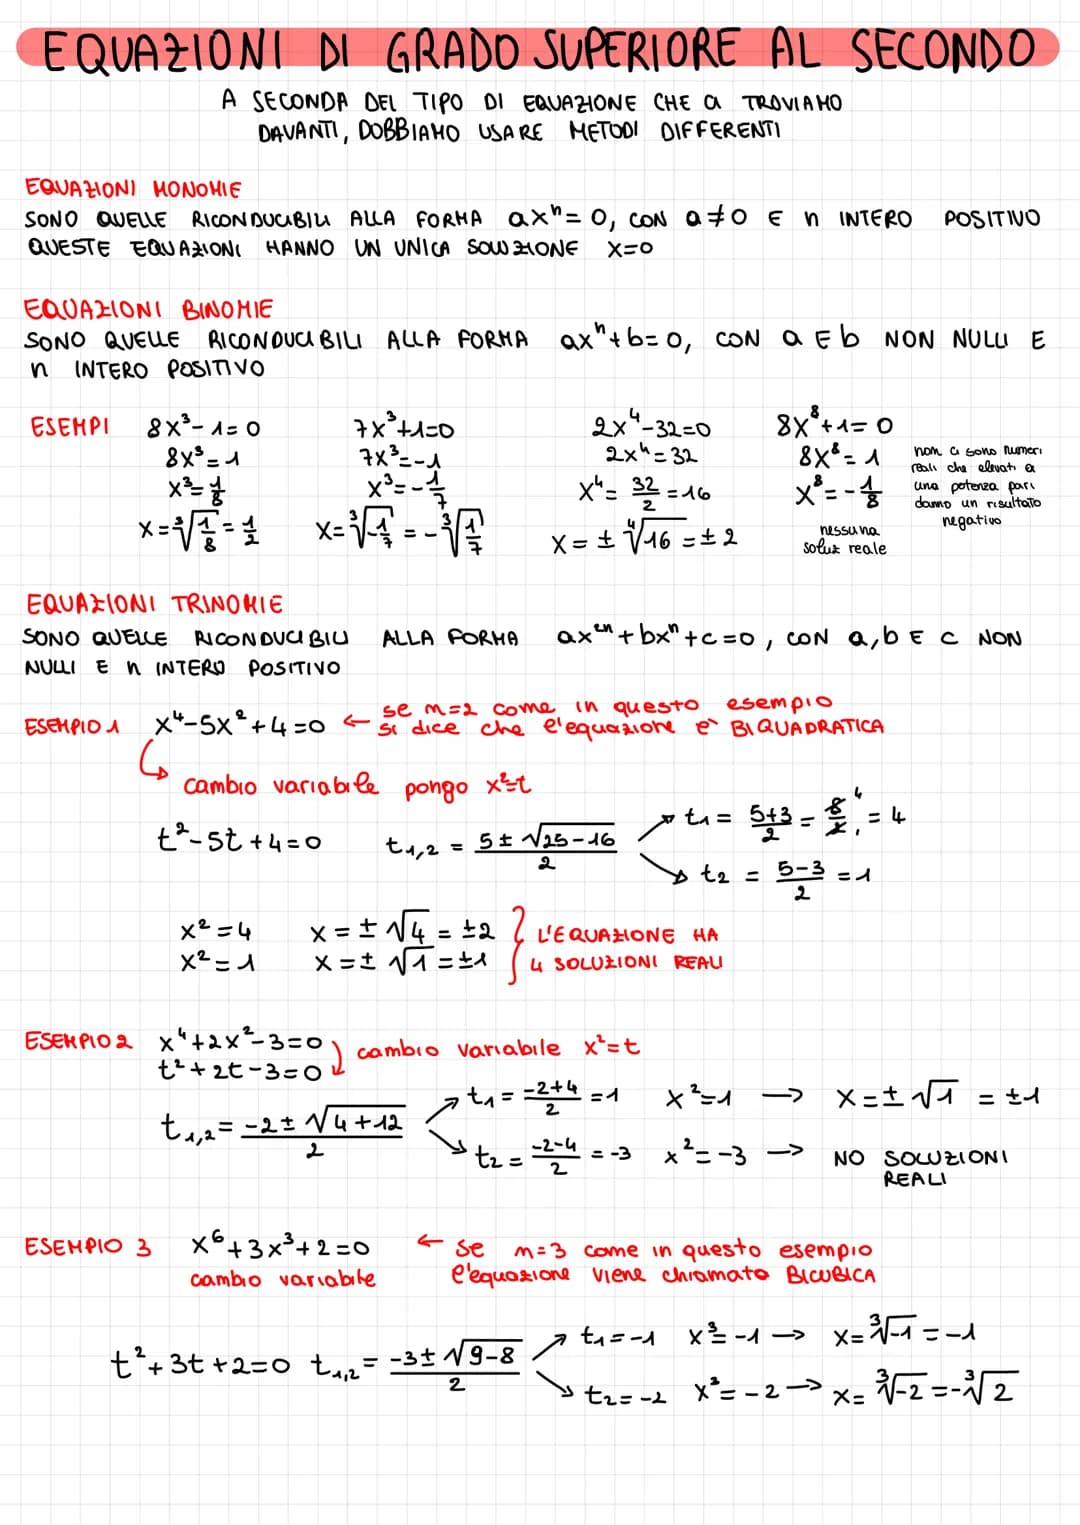 EQUAZIONI DI GRADO SUPERIORE AL SECONDO
A SECONDA DEL TIPO DI EQUAZIONE CHE CI TROVIAMO
DAVANTI, DOBBIAMO USARE METODI DIFFERENTI
EQUAZIONI MONOMIE
SONO QUELLE RICONDUCIBILI ALLA FORMA axⁿ = 0, CON a ≠ 0 E n INTERO POSITIVO
QUESTE EQUAZIONI HANNO UN UNICA SOLUZIONE x=0
EQUAZIONI BINOMIE
SONO QUELLE RICONDUCIBILI ALLA FORMA axⁿ+b=0, CON a E b NON NULLI E
n INTERO POSITIVO
ESEMPI 8x³-1=0 7x³+1=0 2x⁴-32=0 8x⁸+1=0
8x³=1 7x³=-1 2x⁴=32 8x⁸=1
x³=1/8 x³=-1/7 x⁴=32/2=16 x⁸=-1/8
x=∛(1/8)=1/2 x=∛(-1/7)=-∛(1/7) x=±∜16=±2
nessuna
soluz reale
non ci sono numeri
reali che elevati a
una potenza pari
danno un risultato
negativo
EQUAZIONI TRINOMIE
SONO QUELLE RICONDUCIBILI ALLA FORMA ax²ⁿ+bxⁿ+c=0, CON a,b E C NON
NULLI E n INTERO POSITIVO
ESEMPIO 1 x⁴-5x²+4=0 ← se n=2 come in questo esempio
si dice che l'equazione è BIQUADRATICA
cambio variabile pongo x²=t
t²-5t+4=0 t₁,₂ = (5±√(25-16))/2 t₁ = (5+3)/2 = 8/2 4 1 = 4
t₂ = (5-3)/2 = 1
x²=4 x=±√4=±2 L'EQUAZIONE HA
x²=1 x=±√1=±1 4 SOLUZIONI REALI
ESEMPIO 2 x⁴+2x²-3=0
t²+2t-3=0 cambio variabile x²=t
t₁,₂=(-2±√(4+12))/2 t₁=(-2+4)/2=1 x²=1 → x=±√1=±1
t₂=(-2-4)/2=-3 x²=-3 → NO SOLUZIONI
REALI
ESEMPIO 3 x⁶+3x³+2=0 ← se n=3 come in questo esempio
cambio variabile l'equazione viene chiamata BICUBICA
t²+3t+2=0 t₁,₂=(-3±√(9-8))/2 t₁=-1 x³=-1 → x=∛-1=-1
t₂=-2 x³=-2 → x=∛-2=-∛2